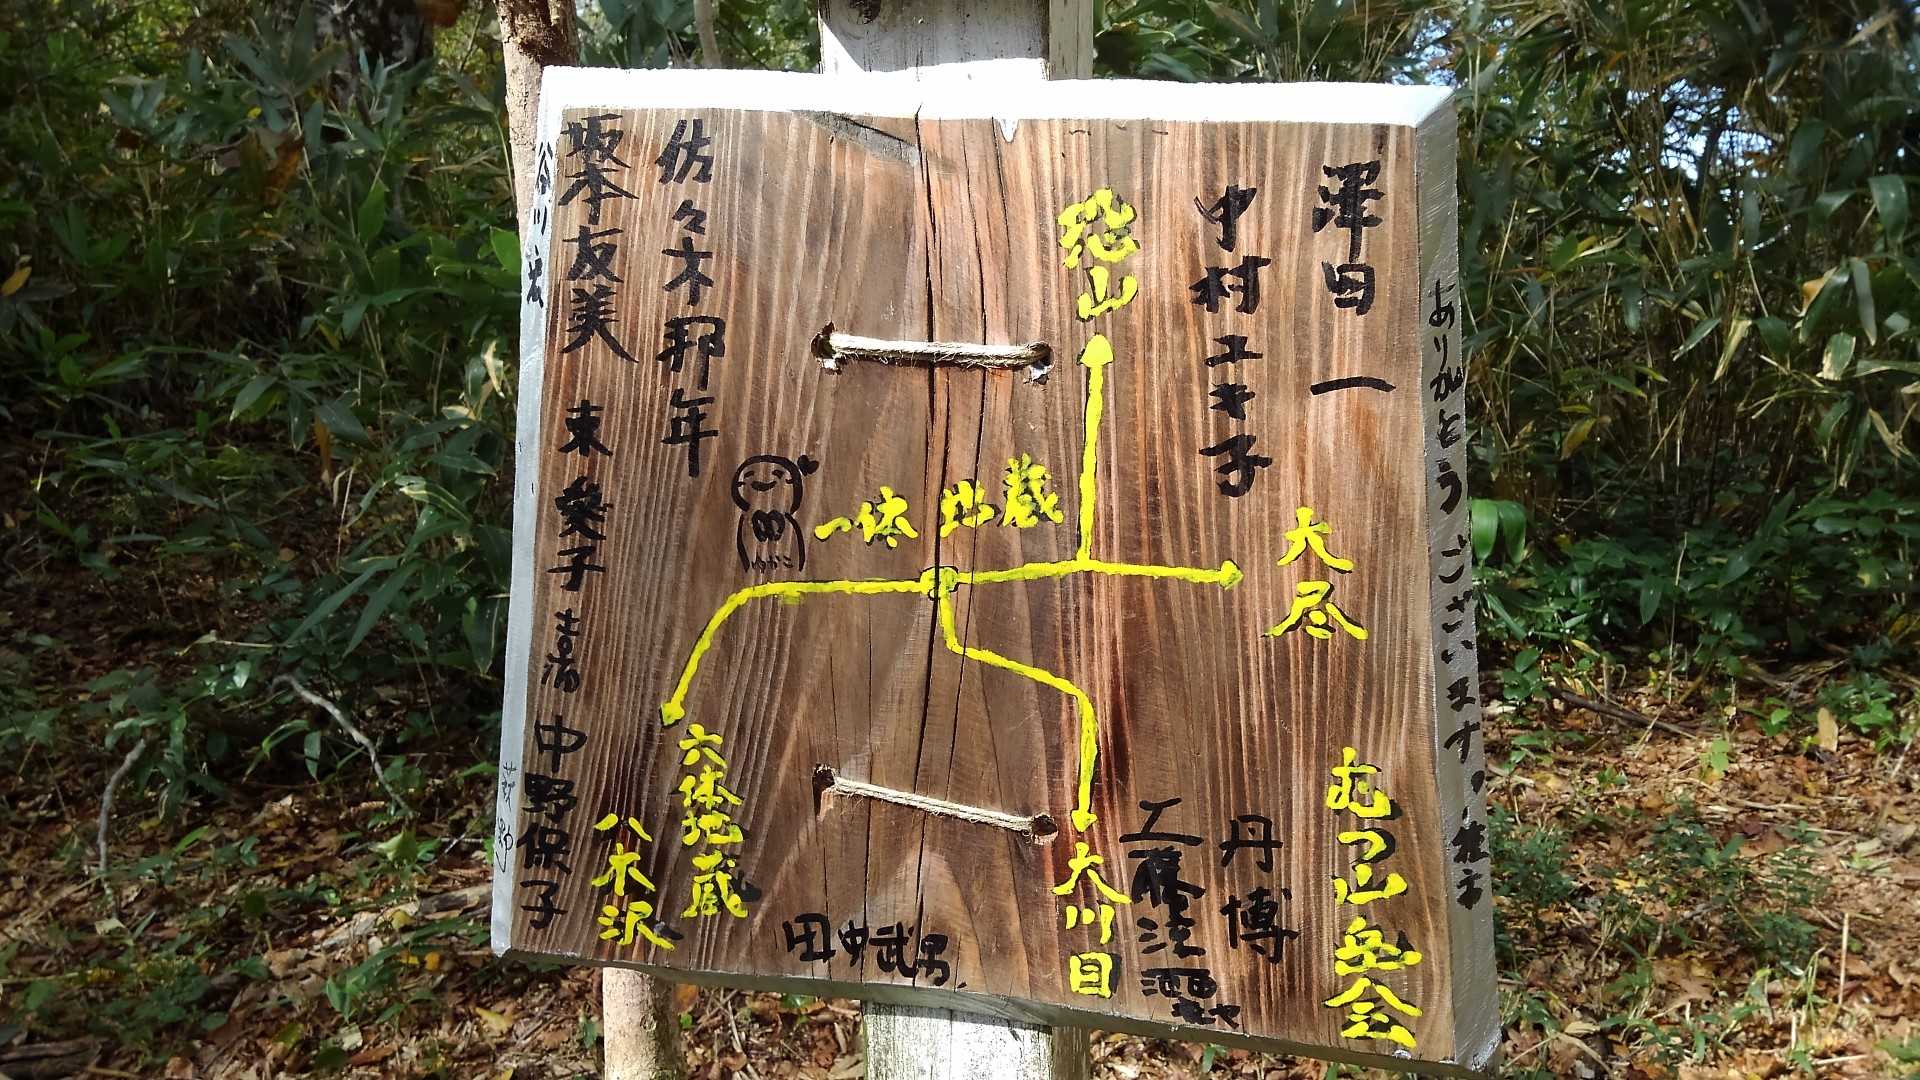 ありがとうございます。
澤田一
中村ユキ子
恐山
大尽
一体地蔵
ゆかこ
佐々木邦年
坂本友美
東 葵子
中野保子
六体地蔵
八木沢
田中武男
大川目
工藤
丹博
むつ山岳会